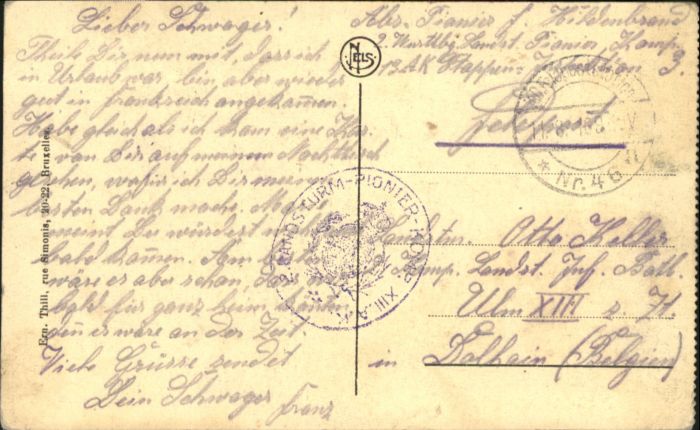 Lieber Schwager!
Theile Dir nun mit, dass ich
in Urlaub war, bin aber wieder
gut in Frankreich angekommen.
Habe gleich als ich kam eine Kar-
te von Dir auf meinem Nachttisch
gesehen, wofür ich Dir meinen
besten Dank mache.
meint Du würdest
bald kommen. Am besten
wäre es aber schon, das
bald für ganz heim könnten
denn es wäre an der Zeit.
Viele Grüsse sendet
Dein Schwager
Franz
Ern. Thill, rue Simonis, 20-22, Bruxelles.
NELS
Abs. Pionier f. Hildenbrand
2. Württbg. Landst. Pionier, Komp.
13 A.K. Etappen-Inspektion 3.
Feldpost
* Nr. 46
2. LANDSTURM-PIONIER-KOMP. XIII. A.K.
Landstm. Otto Heller
Komp. Landst. Inf. Batl.
Ulm XIII z. H.
in Dalhain (Belgien)